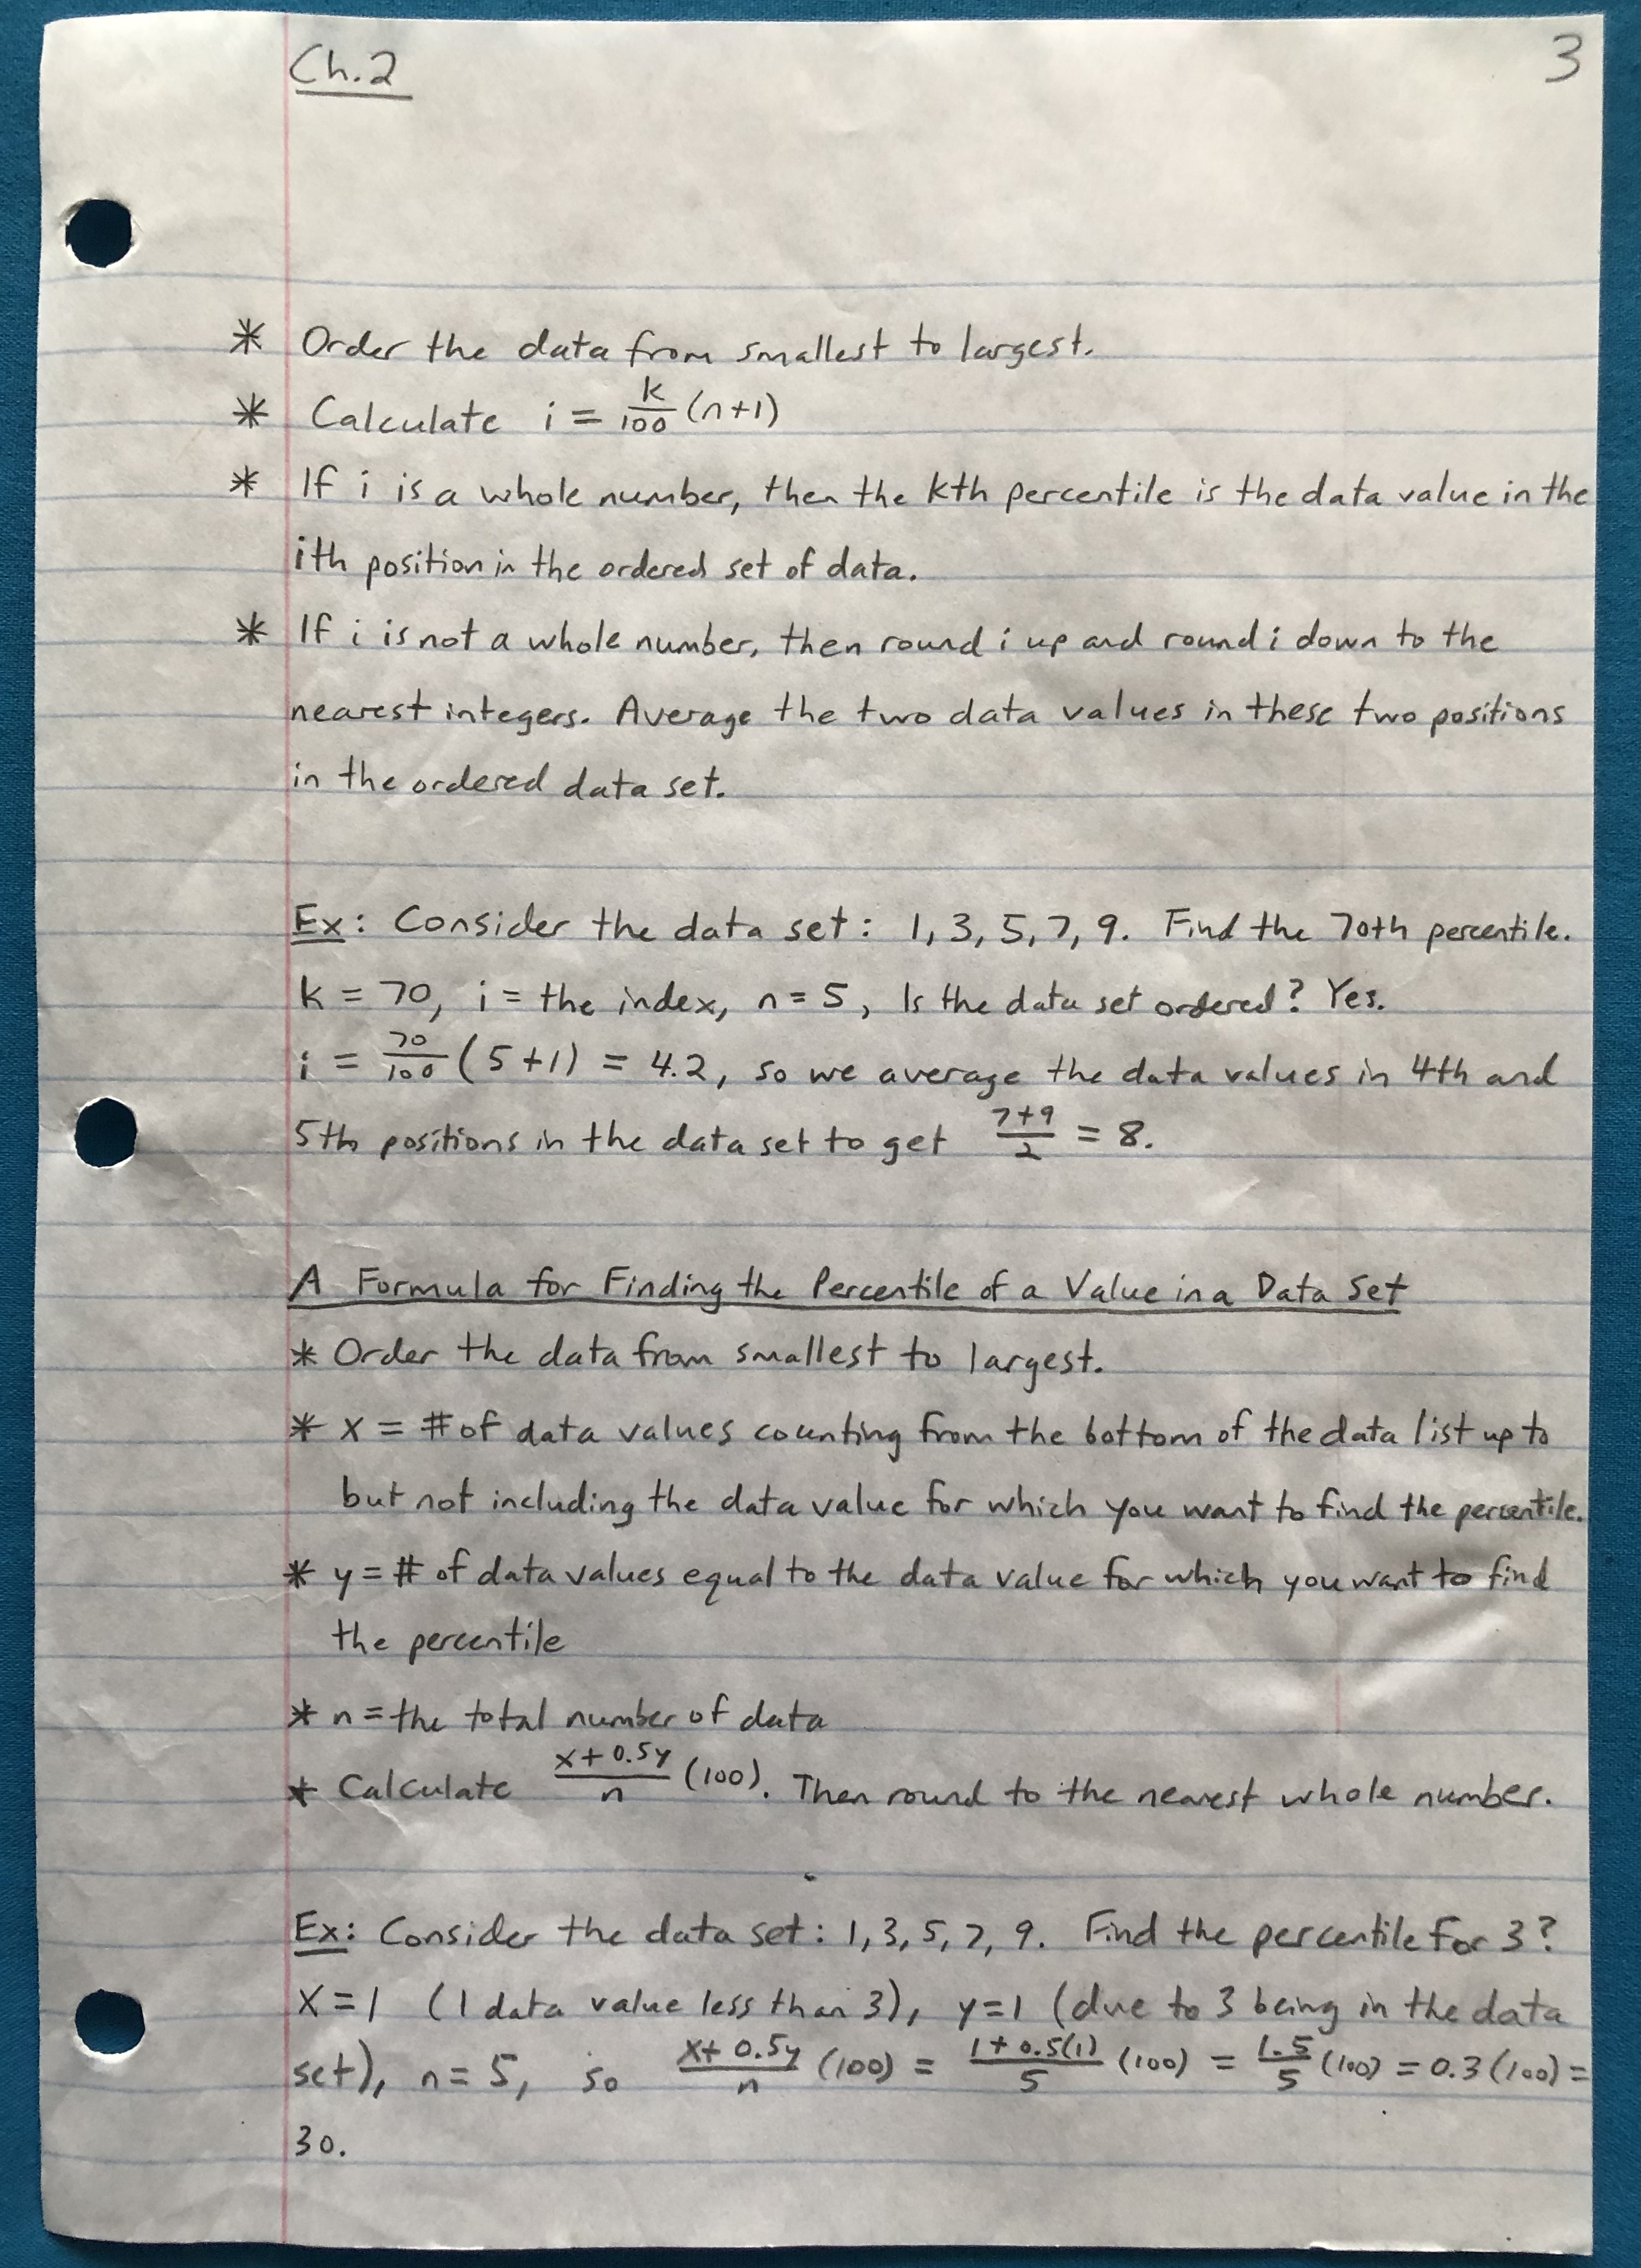 Ch.2
3
* Order the data from smallest to largest.
* Calculate i = k/100 (n+1)
* If i is a whole number, then the kth percentile is the data value in the
ith position in the ordered set of data.
* If i is not a whole number, then round i up and round i down to the
nearest integers. Average the two data values in these two positions
in the ordered data set.
Ex: Consider the data set: 1, 3, 5, 7, 9. Find the 70th percentile.
k = 70, i = the index, n = 5, Is the data set ordered? Yes.
i = 70/100 (5+1) = 4.2, so we average the data values in 4th and
5th positions in the data set to get 7+9/2 = 8.
A Formula for Finding the Percentile of a Value in a Data Set
* Order the data from smallest to largest.
* x = # of data values counting from the bottom of the data list up to
but not including the data value for which you want to find the percentile.
* y = # of data values equal to the data value for which you want to find
the percentile
* n = the total number of data
* Calculate x+0.5y/n (100). Then round to the nearest whole number.
Ex: Consider the data set: 1, 3, 5, 7, 9. Find the percentile for 3?
x=1 (1 data value less than 3), y=1 (due to 3 being in the data
set), n=5, so x+0.5y/n (100) = 1+0.5(1)/5 (100) = 1.5/5 (100) = 0.3(100) =
30.